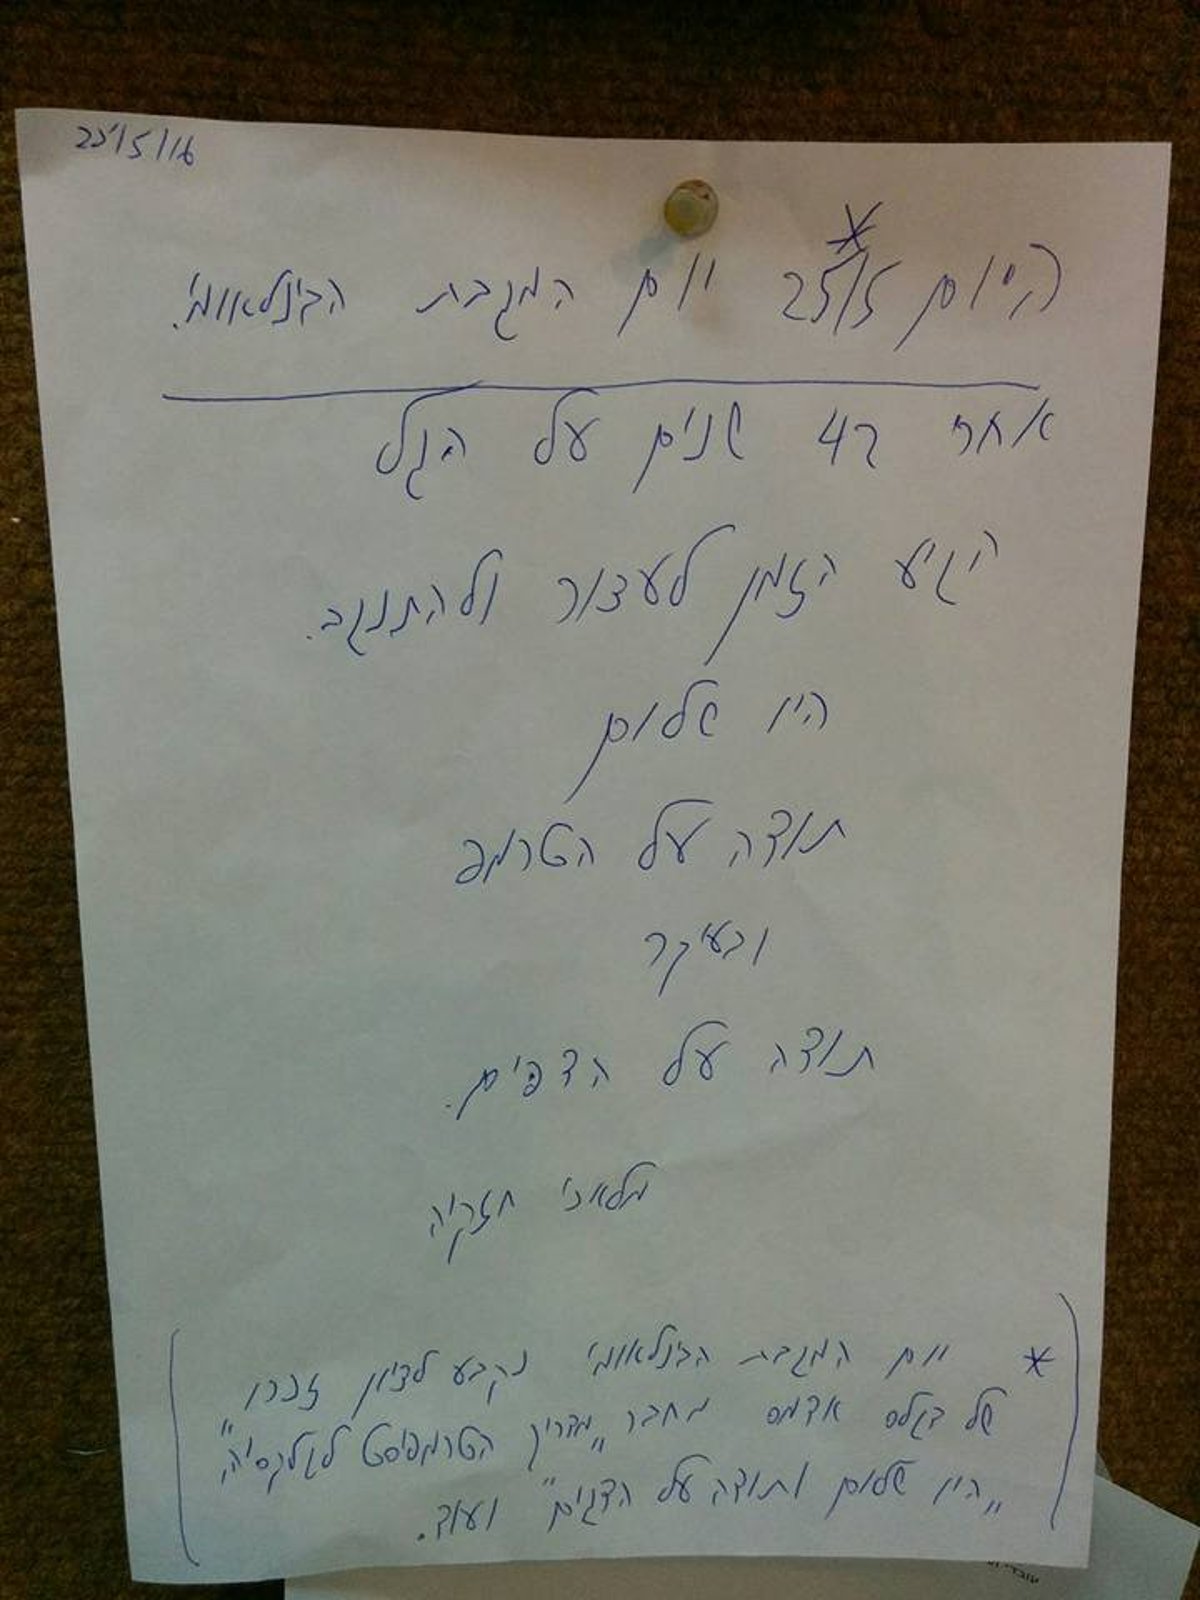 25/5/16
היום 25/5* יום המגבת הבינלאומי.
אחרי 42 שנים על הגל
הגיע הזמן לעצור ולהתנגב.
היו שלום
תודה על הטרמפ
ובעיקר
תודה על הדפים.
מלאכי חזקיה
* יום המגבת הבינלאומי נקבע לציון זכרו
של דגלס אדמס מחבר "מדריך הטרמפיסט לגלקסיה"
"היו שלום ותודה על הדגים" ועוד.